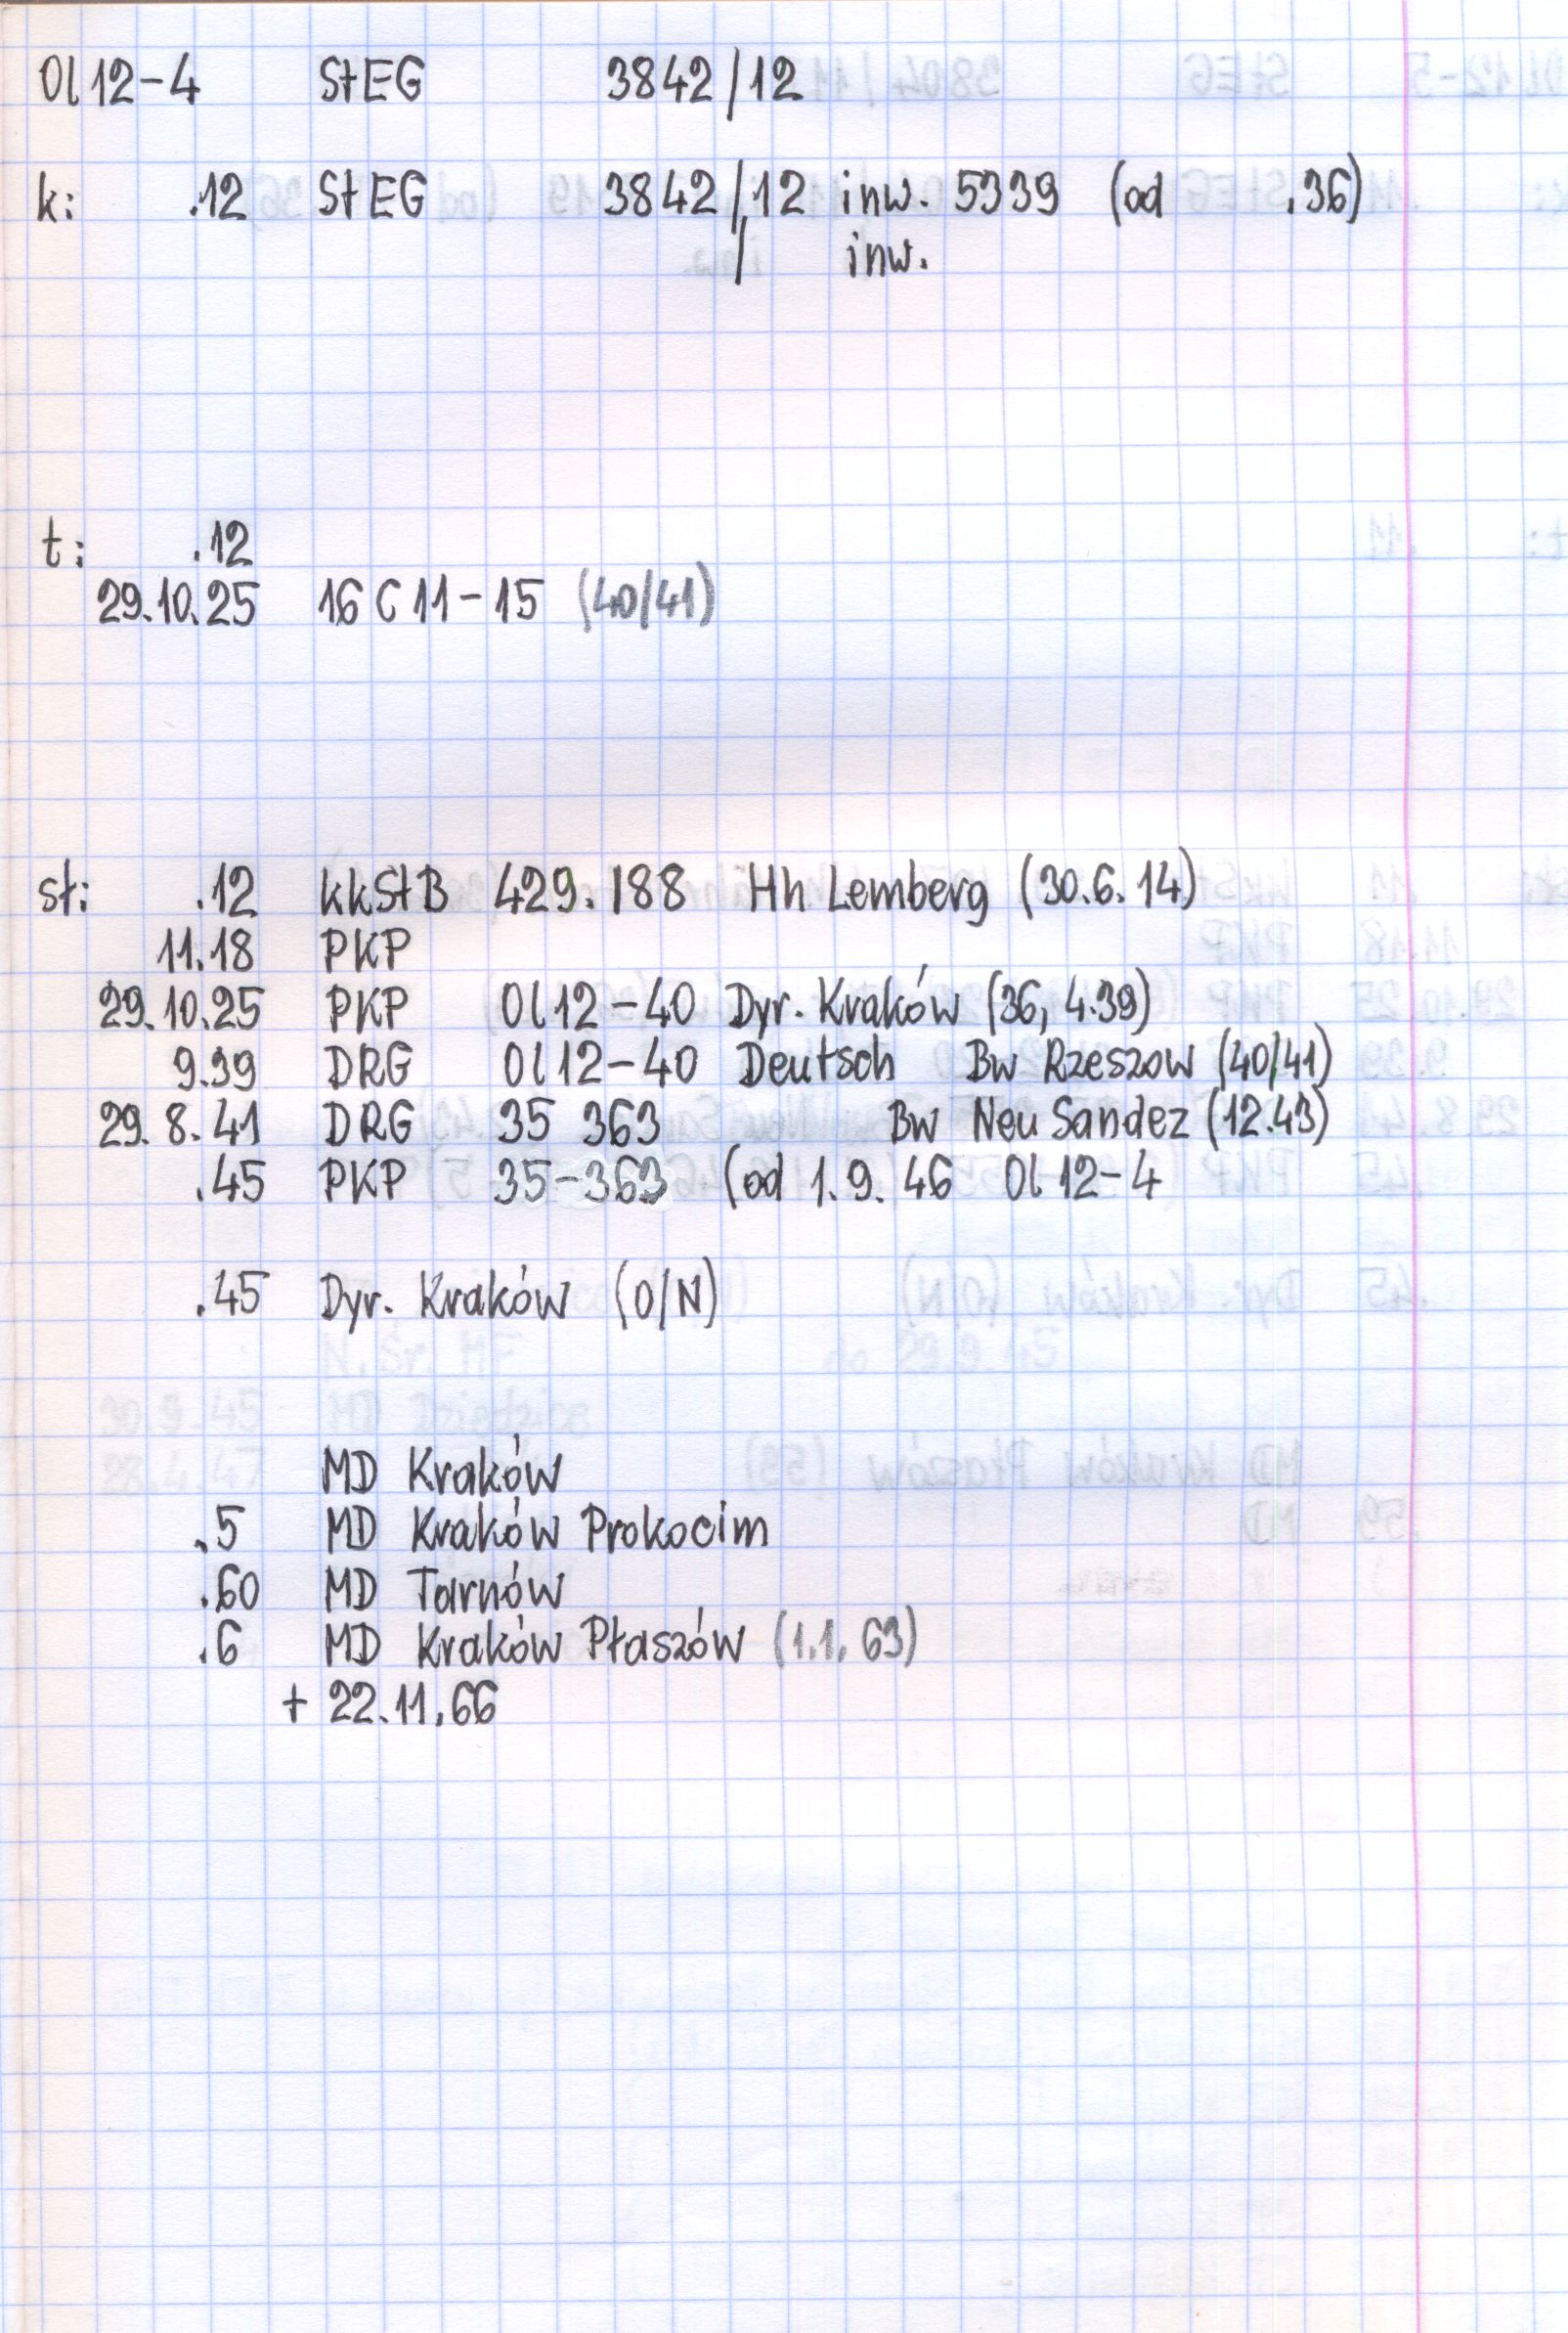 Ol12-4 StEG 3842/12
k: .12 StEG 3842/12 inw. 5339 (od .36)
/ inw.
t: .12
29.10.25 16C11-15 (40/41)
st: .12 kkStB 429.188 Hh Lemberg (30.6.14)
11.18 PKP
29.10.25 PKP Ol12-40 Dyr. Kraków (36, 4.39)
9.39 DRG Ol12-40 Deutsch Bw Rzeszow (40/41)
29.8.41 DRG 35 363 Bw Neu Sandez (12.43)
.45 PKP 35-363 (od 1.9.46 Ol12-4
.45 Dyr. Kraków (O/N)
MD Kraków
.5 MD Kraków Prokocim
.60 MD Tarnów
.6 MD Kraków Płaszów (1.1.63)
+ 22.11.66